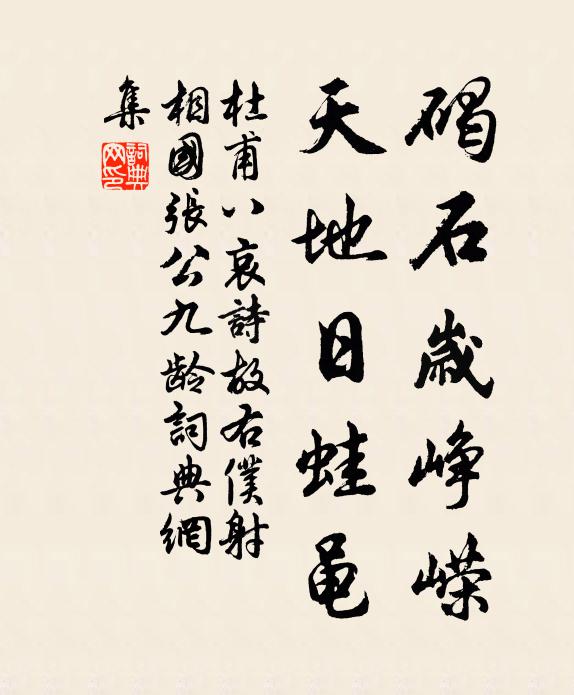 碣石歲崢嶸
天地日蛙黽
杜甫八哀詩故右僕射
相國張公九齡詞典網
集
詞典
网印